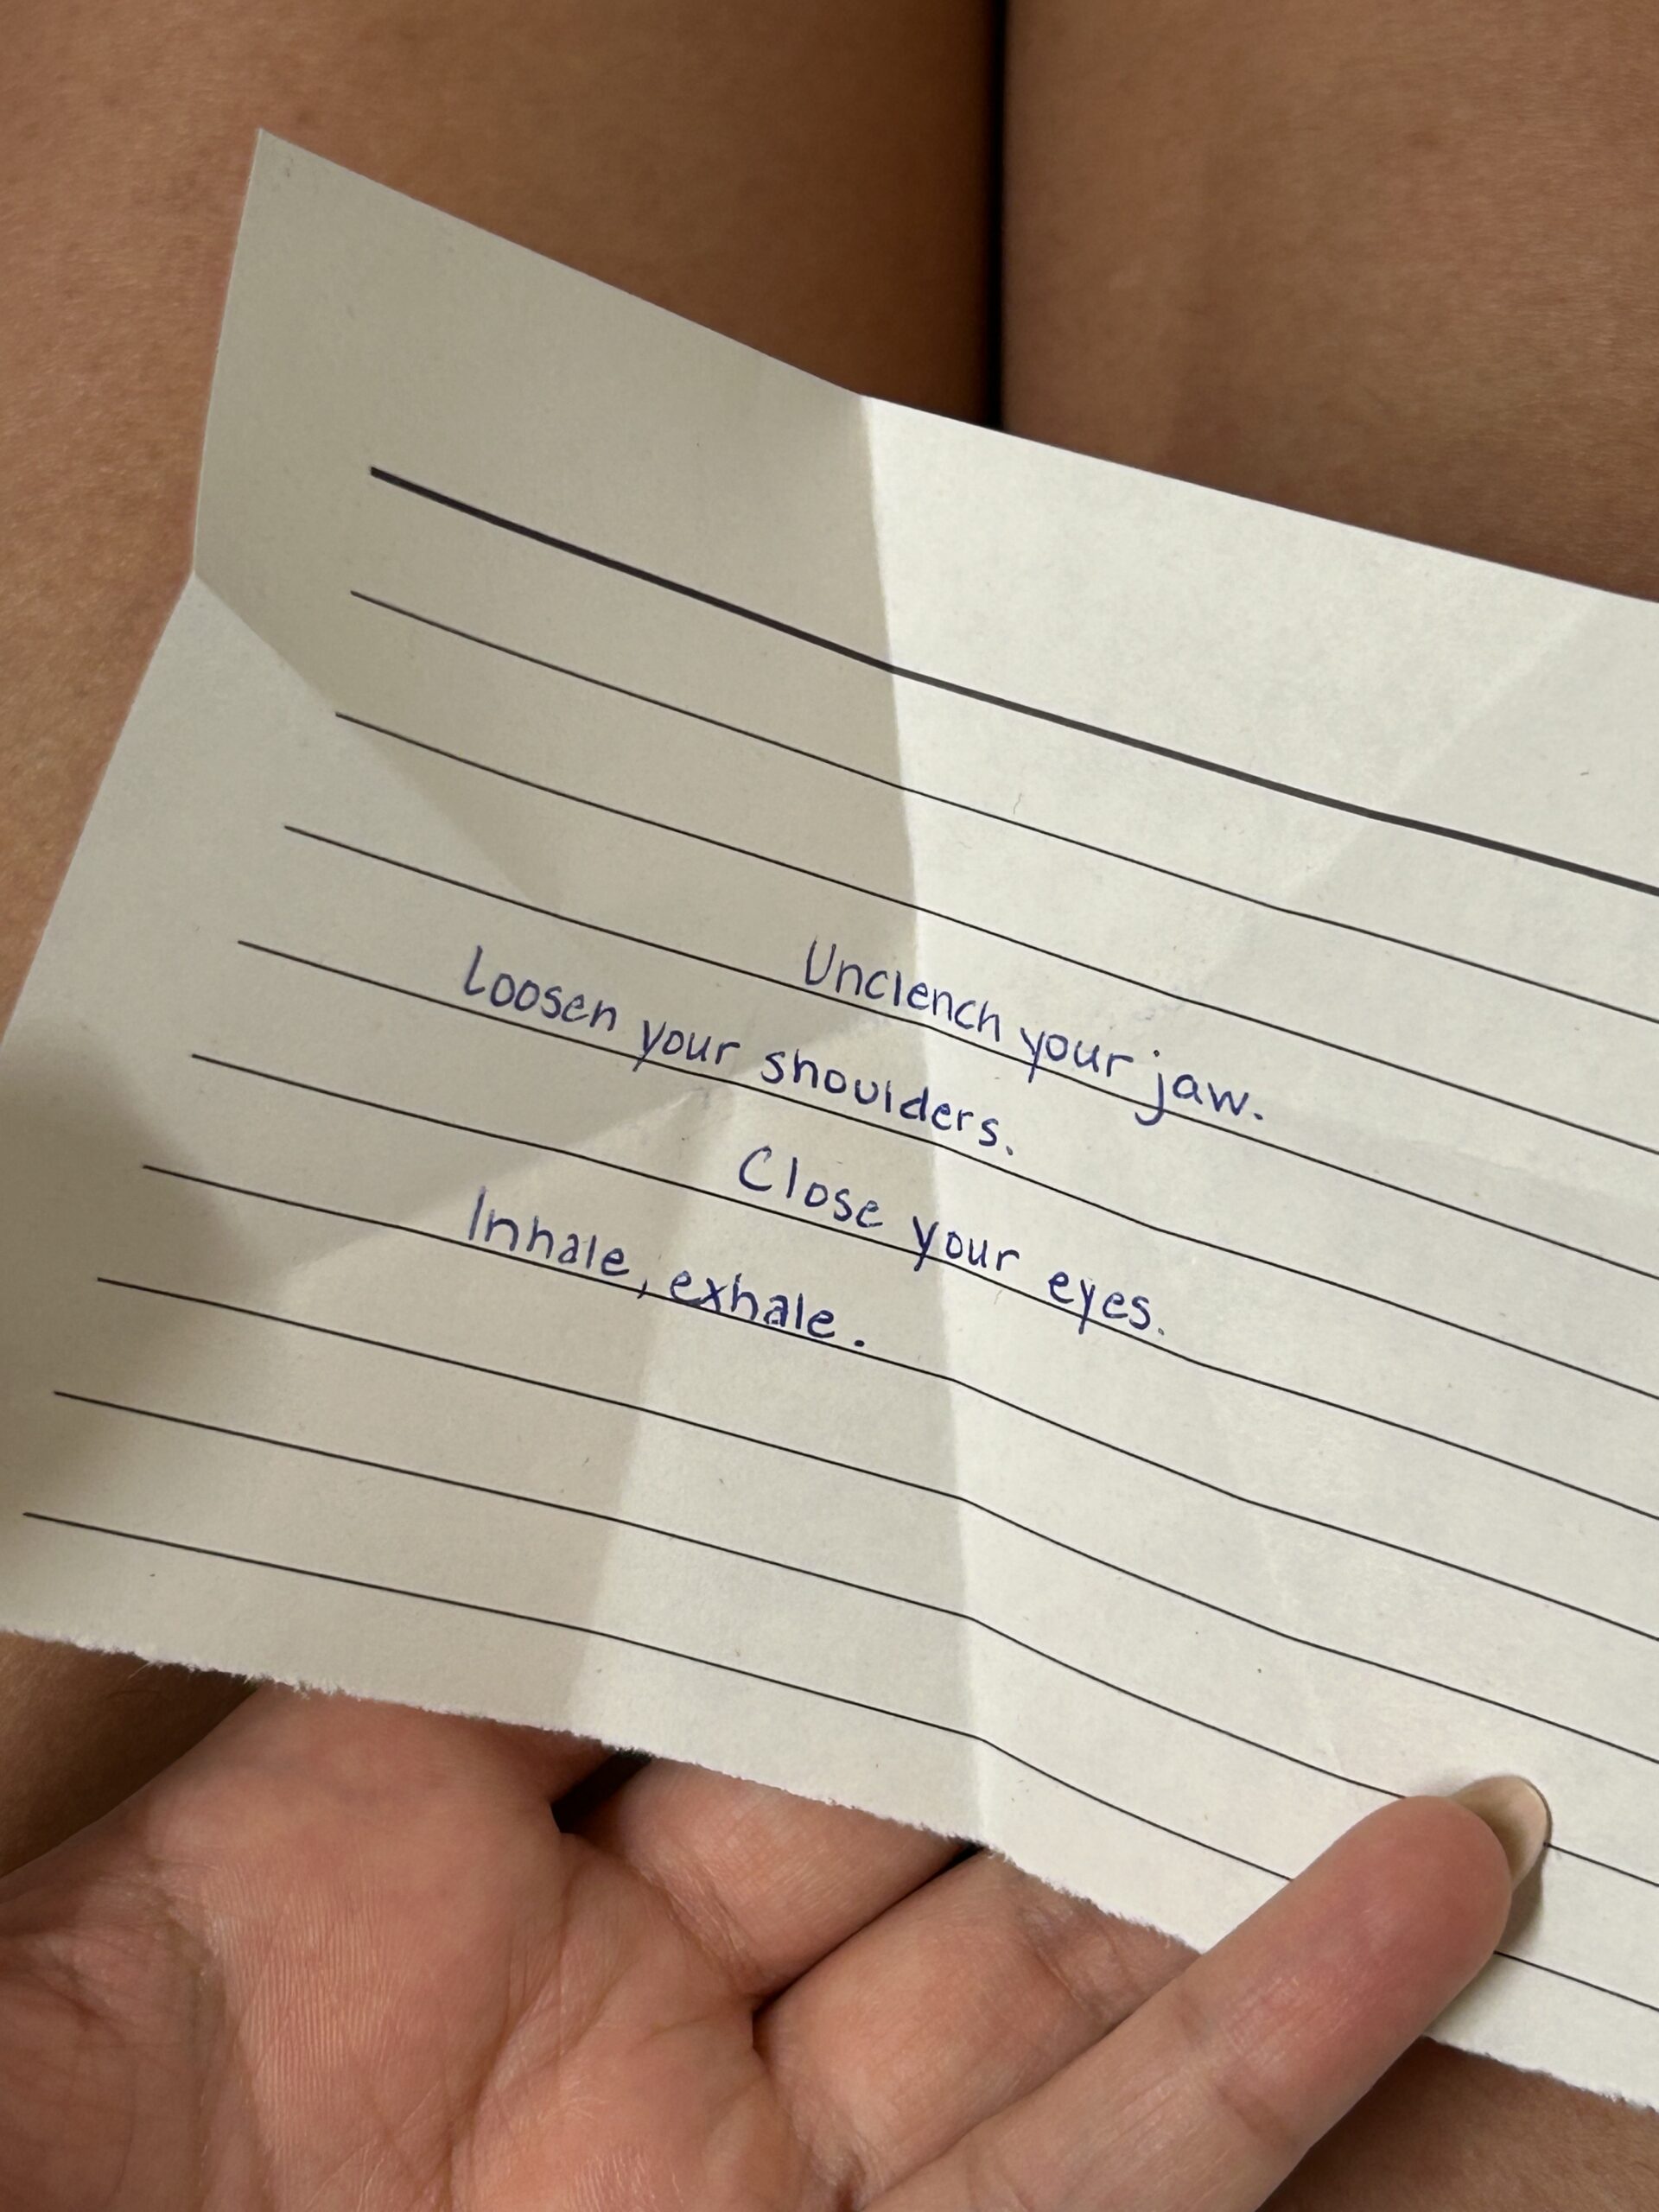 Unclench your jaw.
Loosen your shoulders.
Close your eyes.
Inhale, exhale.